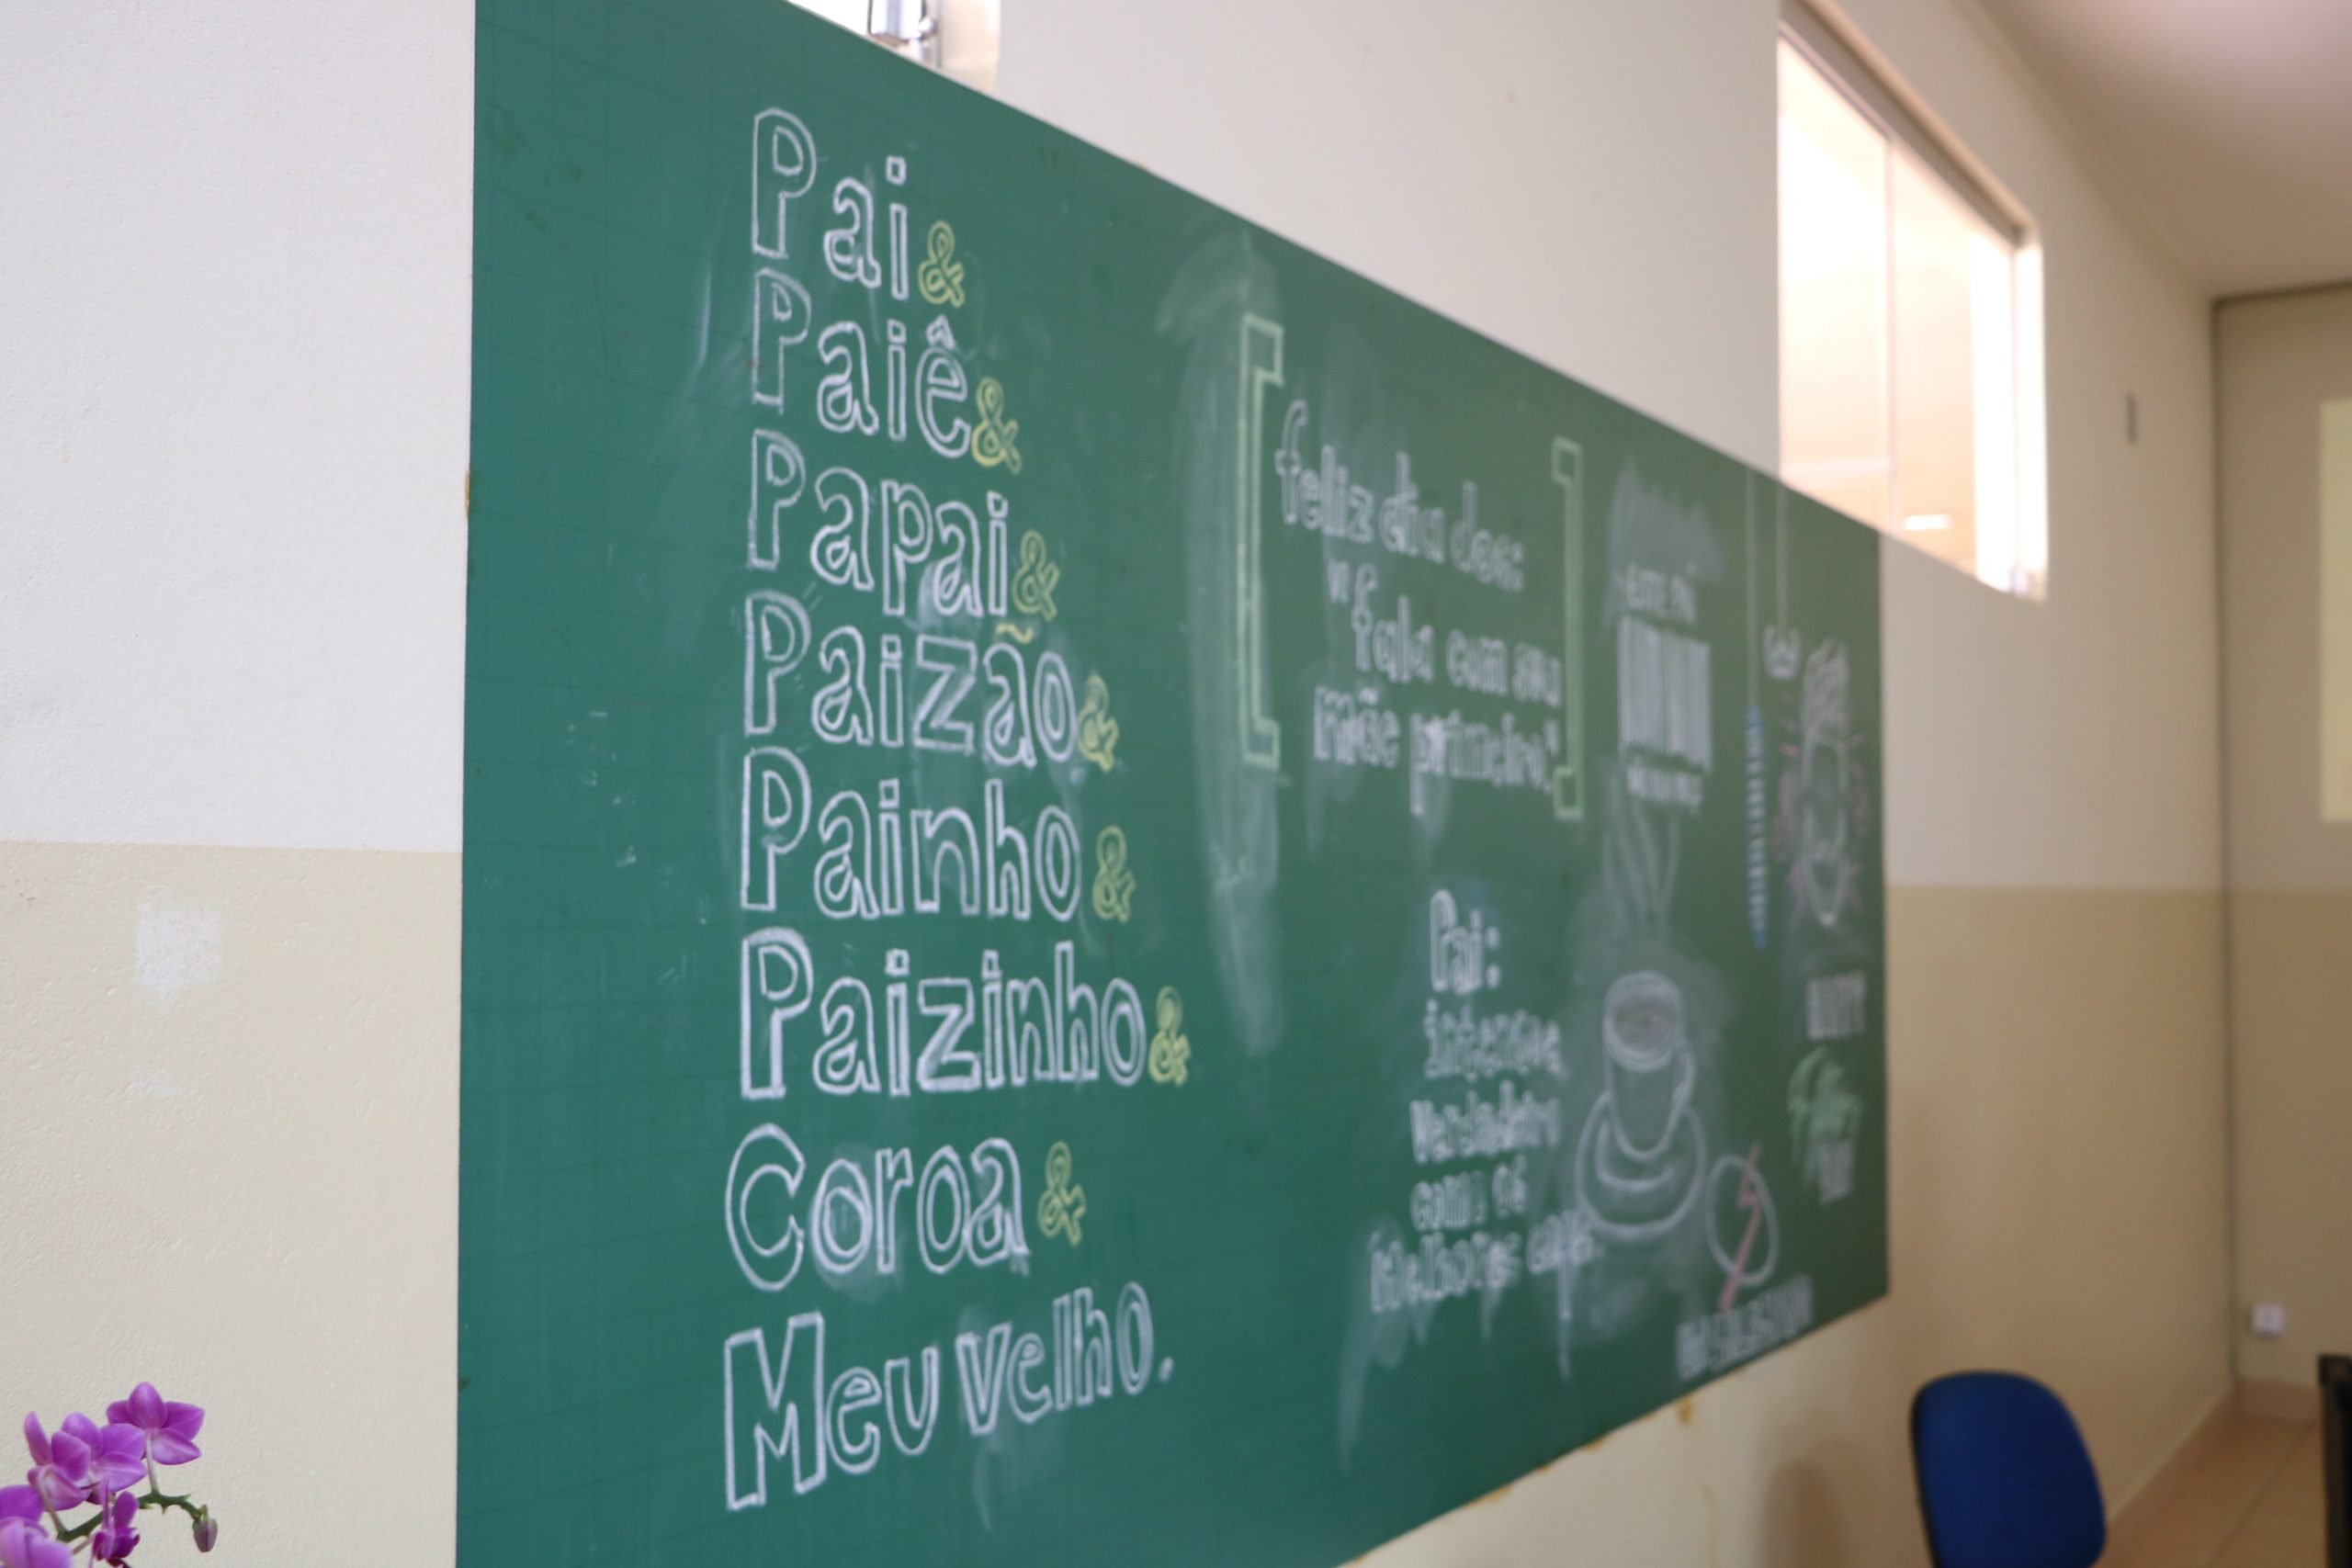 Pai &
Paiê &
Papai &
Paizão &
Painho &
Paizinho &
Coroa &
Meu velho.
feliz dia dos:
"f
fala com sua
mãe primeiro."
Pai:
intenso e
Verdadeiro
como os
melhores cafés.